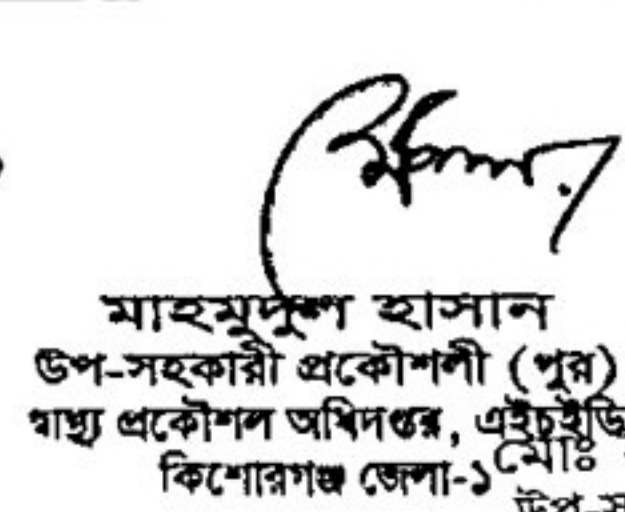 মাহমুদুল হাসান
উপ-সহকারী প্রকৌশলী (পুর)
স্বাস্থ্য প্রকৌশল অধিদপ্তর, এইচইডি
কিশোরগঞ্জ জেলা-১ মোঃ
উপ-স